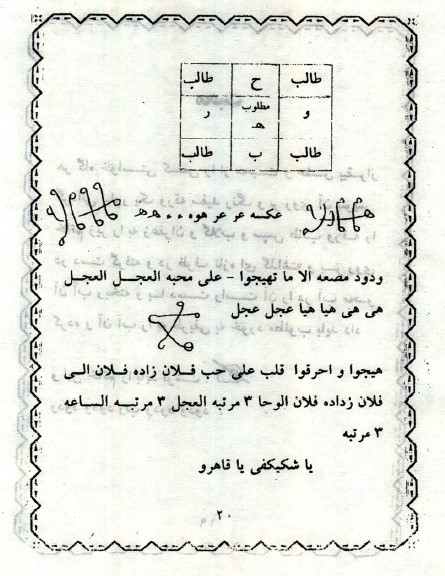 طالب ح طالب
و مطلوب ه ر
طالب ب طالب
عکسه عر عر هوه . . هـ هـ
ودود مصعه الا ما تهیجوا - علی محبه العجـل العجـل
هی هی هیا هیا عجل عجل
هیجوا و احرقوا قلب علی حب فـلان زاده فـلان الـی
فلان زداده فلان الوحا ٣ مرتبه العجل ٣ مرتبـه الساعه
٣ مرتبه
یا شکیکفی یا قاهرو
٢٠